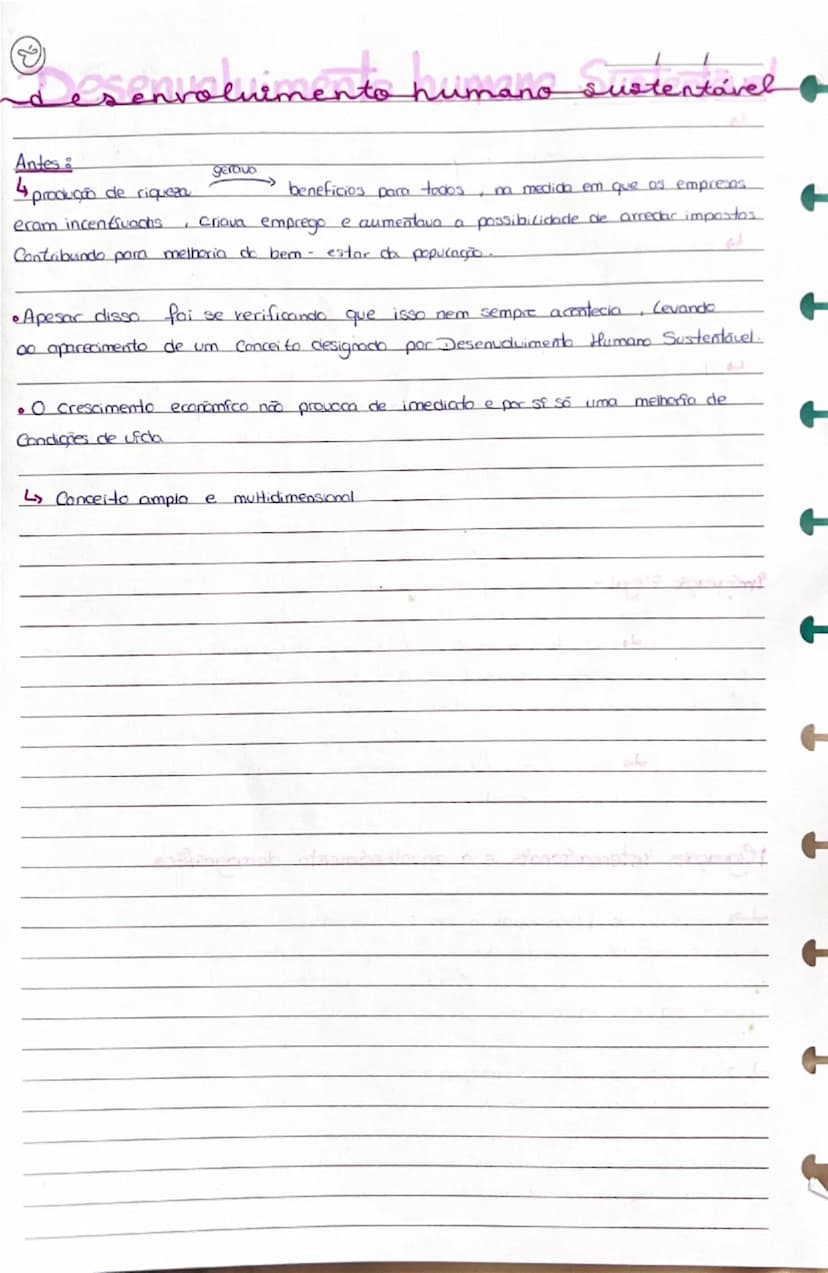 Desenvolvimento humano Sustentável
desenvolvimento humano sustentável
Antes:
↳ produção de riqueza gerava → benefícios para todos, na medida em que as empresas
eram incentivadas, criava emprego e aumentava a possibilidade de arrecdar impostos
Contribuindo para melhoria do bem-estar da população.
• Apesar disso foi se verificando que isso nem sempre acontecia, levando
ao aparecimento de um conceito designado por Desenvolvimento Humano Sustentável.
• O crescimento económico não provoca de imediato e por si só uma melhoria de
Condições de vida
↳ Conceito amplo e multidimensional